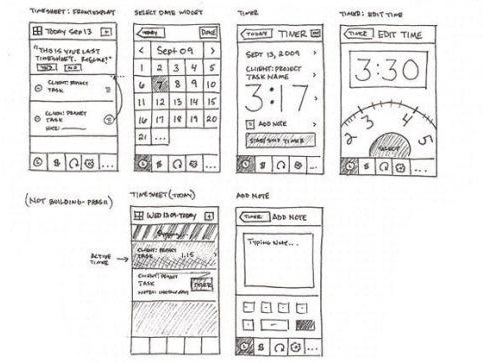 TIMESHEET: 
TODAY SEP 13
"THIS IS YOUR LAST
TIMESHEET. RESUME?"
YES NO
CLIENT: PROJECT
TASK
CLIENT: PROJECT
TASK
NOTE:
$
...
SELECT DATE WIDGET
TODAY
DONE
< SEPT 09 >
1 2 3 4 5
6 7 8 9 10
11 12 13 14 15
16 17 18 19 20
21 ...
$
...
TIMER
TODAY TIMER
SEPT 13, 2009 >
CLIENT: PROJECT
TASK NAME >
3:17
ADD NOTE >
START/STOP TIMER
$
...
TIMER: EDIT TIME
TIMER EDIT TIME
3:30
2 3 4 5
SELECT
$
...
(NOT BUILDING
TIMESHEET (TODAY)
WED 1309-TODAY
ACTIVE
TIMER
CLIENT: PROJECT
TASK 1.15 >
CLIENT: PROJECT
TASK
NOTES:
ADD NOTE
TIMER ADD NOTE
TYPING NOTE...
$
...